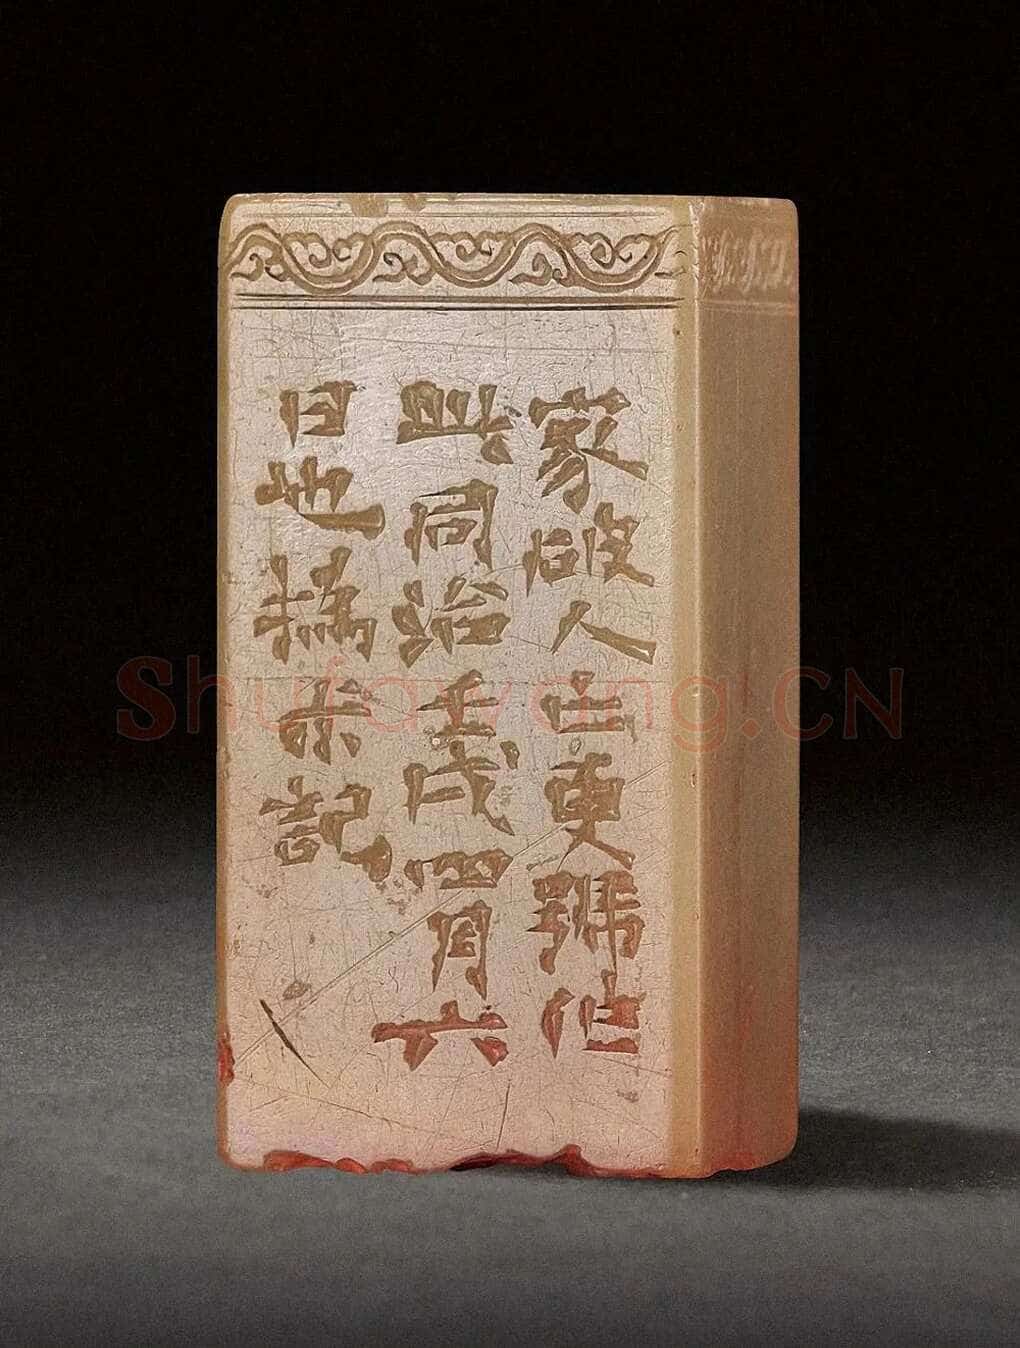 家破人亡更號作
此同治壬戌四月六
日也撝叔記
Shufawang.CN